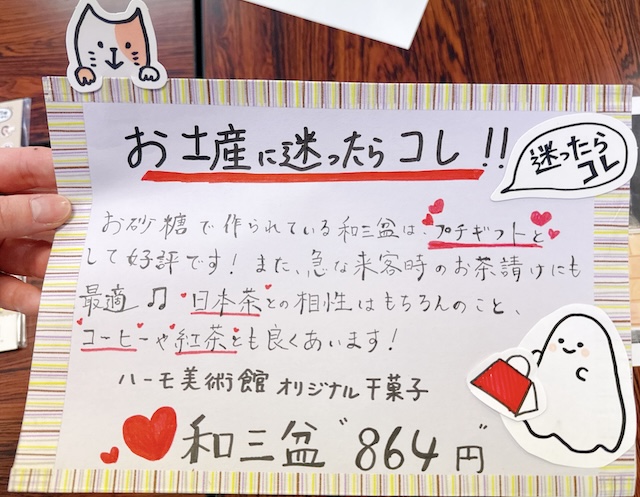 お土産に迷ったらコレ!!
迷ったら
コレ
お砂糖で作られている和三盆は、プチギフトと
して好評です!また、急な来客時のお茶請けにも
最適♫ 日本茶との相性はもちろんのこと、
コーヒーや紅茶とも良くあいます!
ハーモ美術館 オリジナル干菓子
和三盆 "864円"